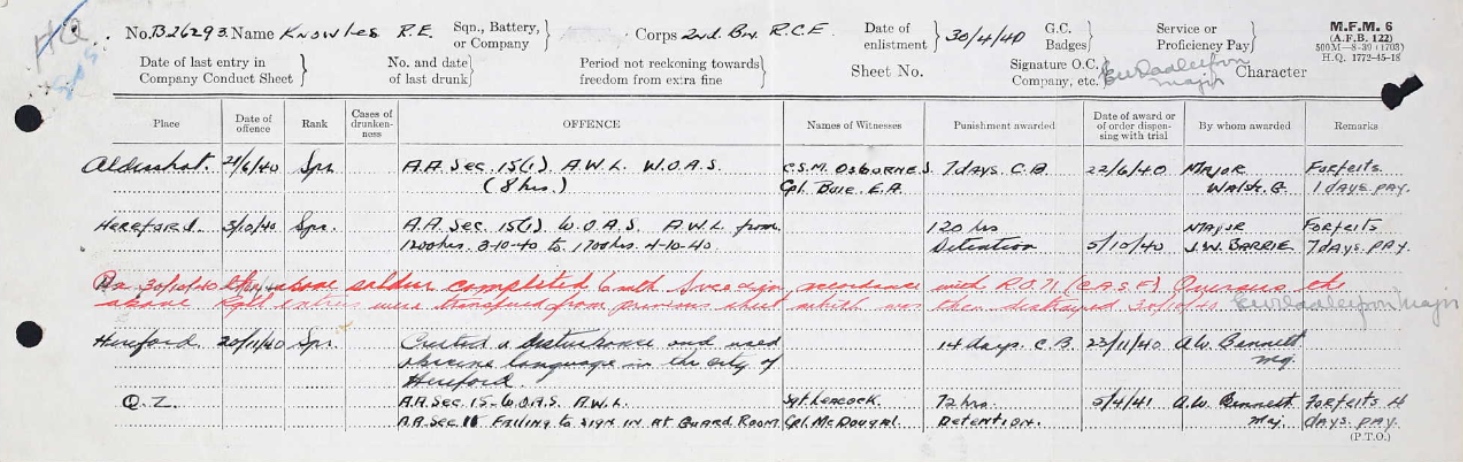 No. B26293 Name Knowles R.E. Sqn., Battery, or Company } Corps 2nd. Bn. R.C.E. Date of enlistment } 30/4/40 G.C. Badges } Service or Proficiency Pay } M.F.M. 6
(A.F.B. 122)
500M—8-39 (1703)
H.Q. 1772-45-18
Date of last entry in Company Conduct Sheet } No. and date of last drunk } Period not reckoning towards freedom from extra fine } Sheet No. Signature O.C. Company, etc. } Major Character
Place Date of offence Rank Cases of drunken-ness OFFENCE Names of Witnesses Punishment awarded Date of award or of order dispen-sing with trial By whom awarded Remarks
Aldershot. 21/6/40 Spr. A.A. Sec. 15(1). A.W.L. W.O.A.S. C.S.M. Osborne S. 7 days. C.B. 22/6/40 Major Forfeits
(8 hrs.) Cpl. E.A. Walsh. G. 1 days. pay.
Hereford. 5/10/40 Spr. A.A. Sec. 15(1). W.O.A.S. A.W.L. from 120 hrs Major Forfeits
1200 hrs. 3-10-40 to 1700 hrs. 4-10-40. Detention 5/10/40 J.W. Barrie 7 days. pay.
On 30/10/40 the above soldier completed 6 mth Svce in accordance with R.O. 71 (C.A.S.F.) Overseas the
above entries were transferred from previous sheet which was then destroyed 30/10/40 Major
Hereford. 20/11/40 Spr. Created a disturbance and used 14 days. C.B. 23/11/40 A.W. Bennett
obscene language in the city of Mj.
Hereford.
O.Z. A.A. Sec. 15- W.O.A.S. A.W.L. Sgt. Leacock. 72 hrs. 5/4/41 A.W. Bennett Forfeits 4
A.A. Sec. 11 Failing to sign in at Guard Room Cpl. McDougal. Detention. Mj. days. pay.
(P.T.O.)